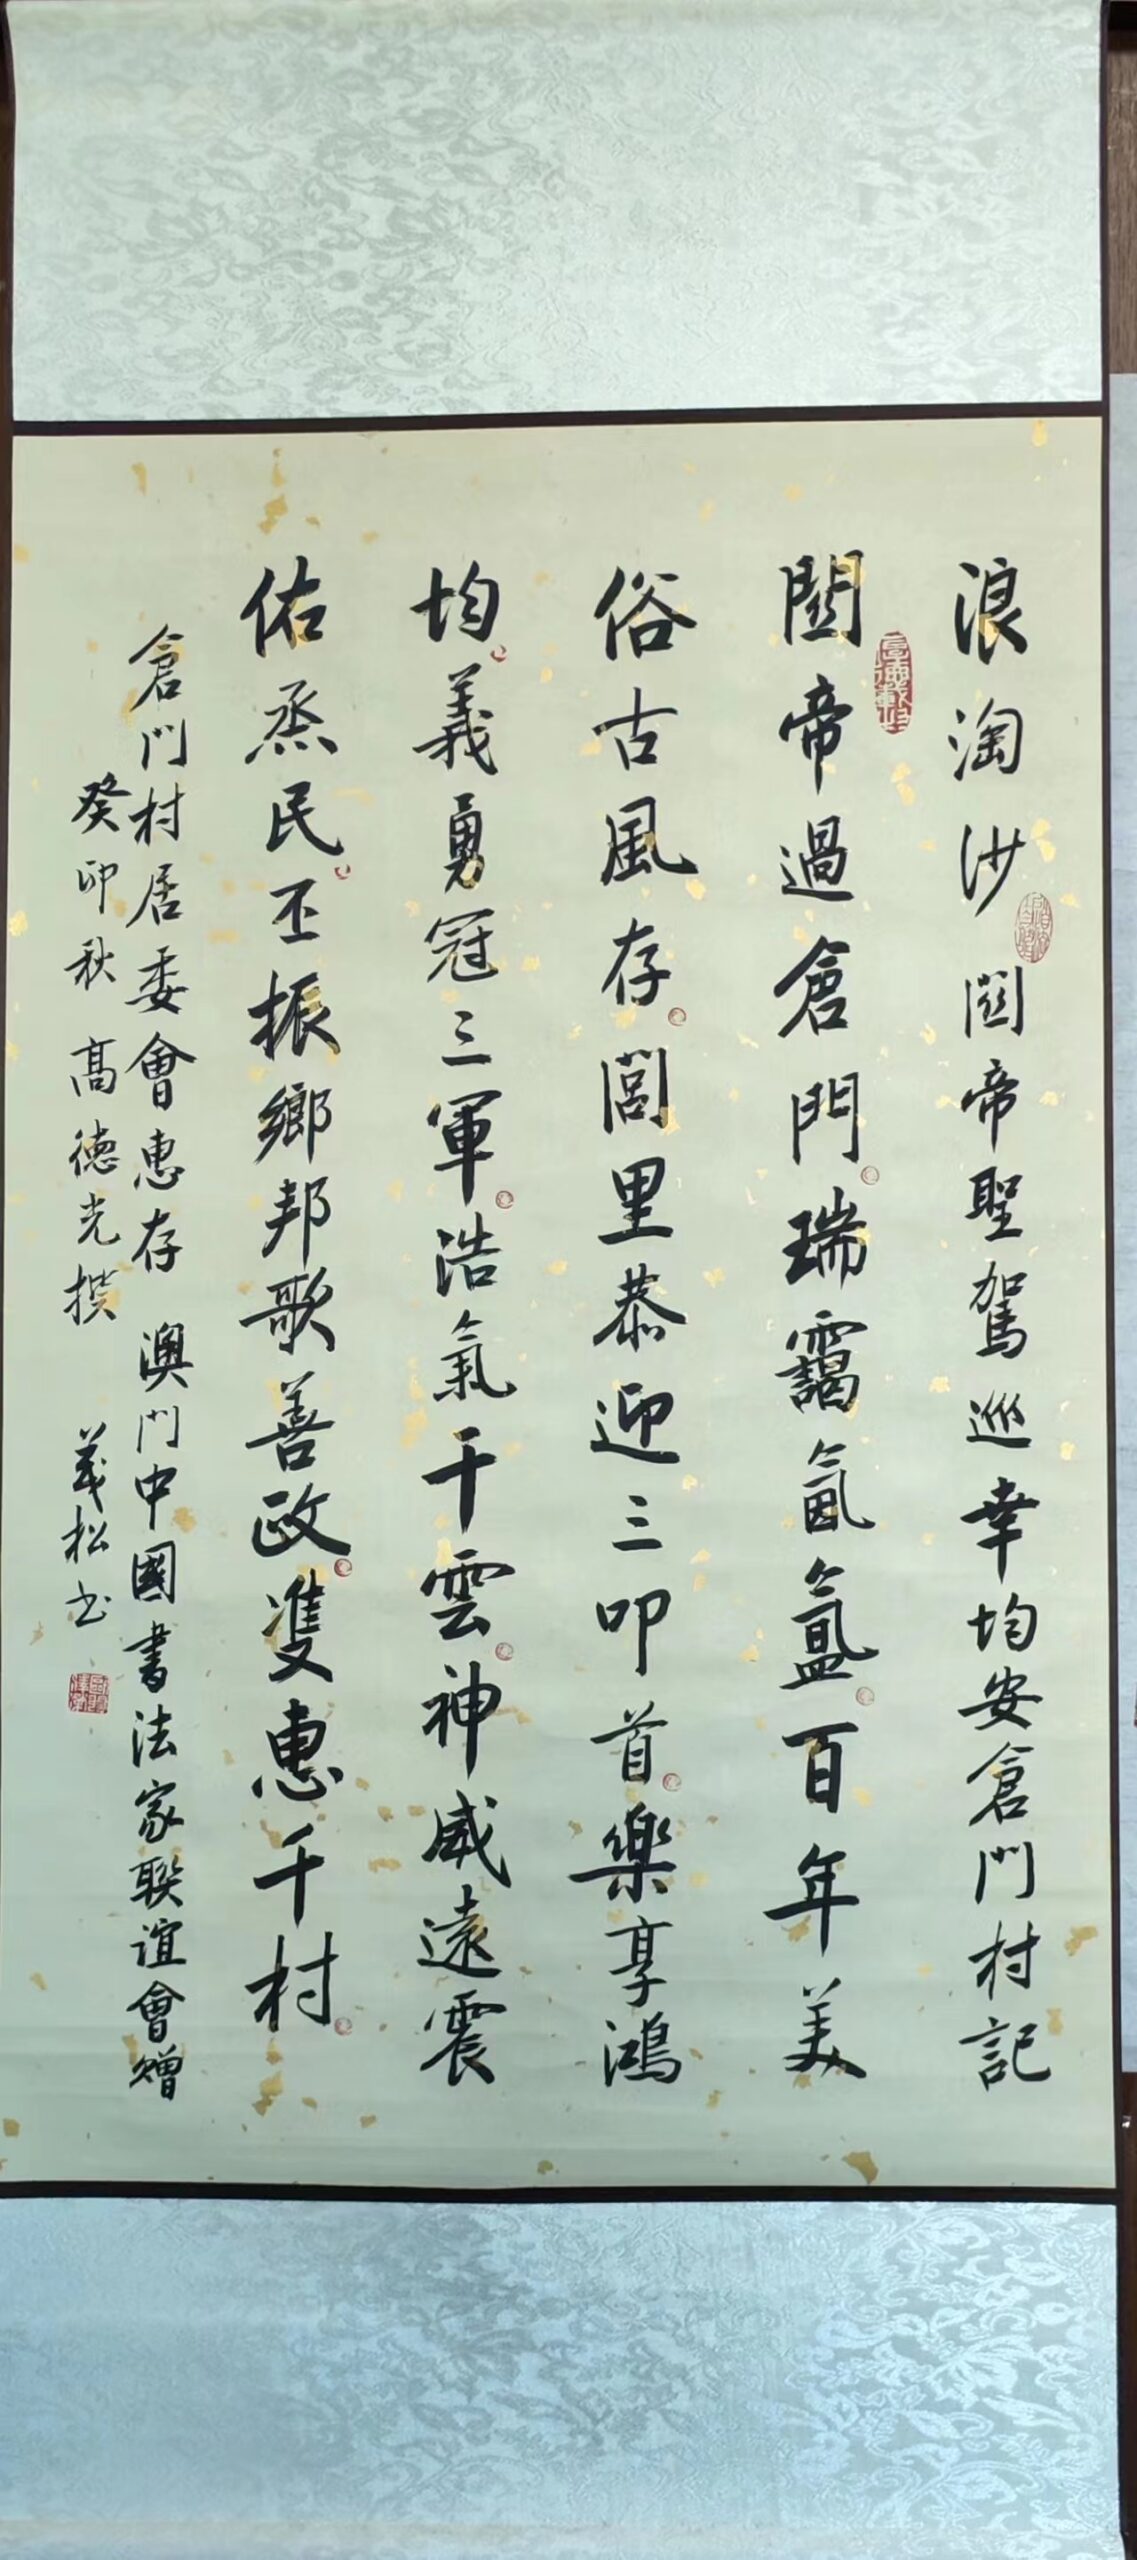 浪淘沙 関帝聖駕巡幸均安倉門村記
関帝過倉門瑞靄氤氳百年美
俗古風存閭里恭迎三叩首樂享鴻
均義勇冠三軍浩氣干雲神威遠震
佑烝民丕振鄉邦歌善政雙惠千村
倉門村居委會惠存 澳門中國書法家聯誼會贈
癸卯秋 高德光撰 義松书